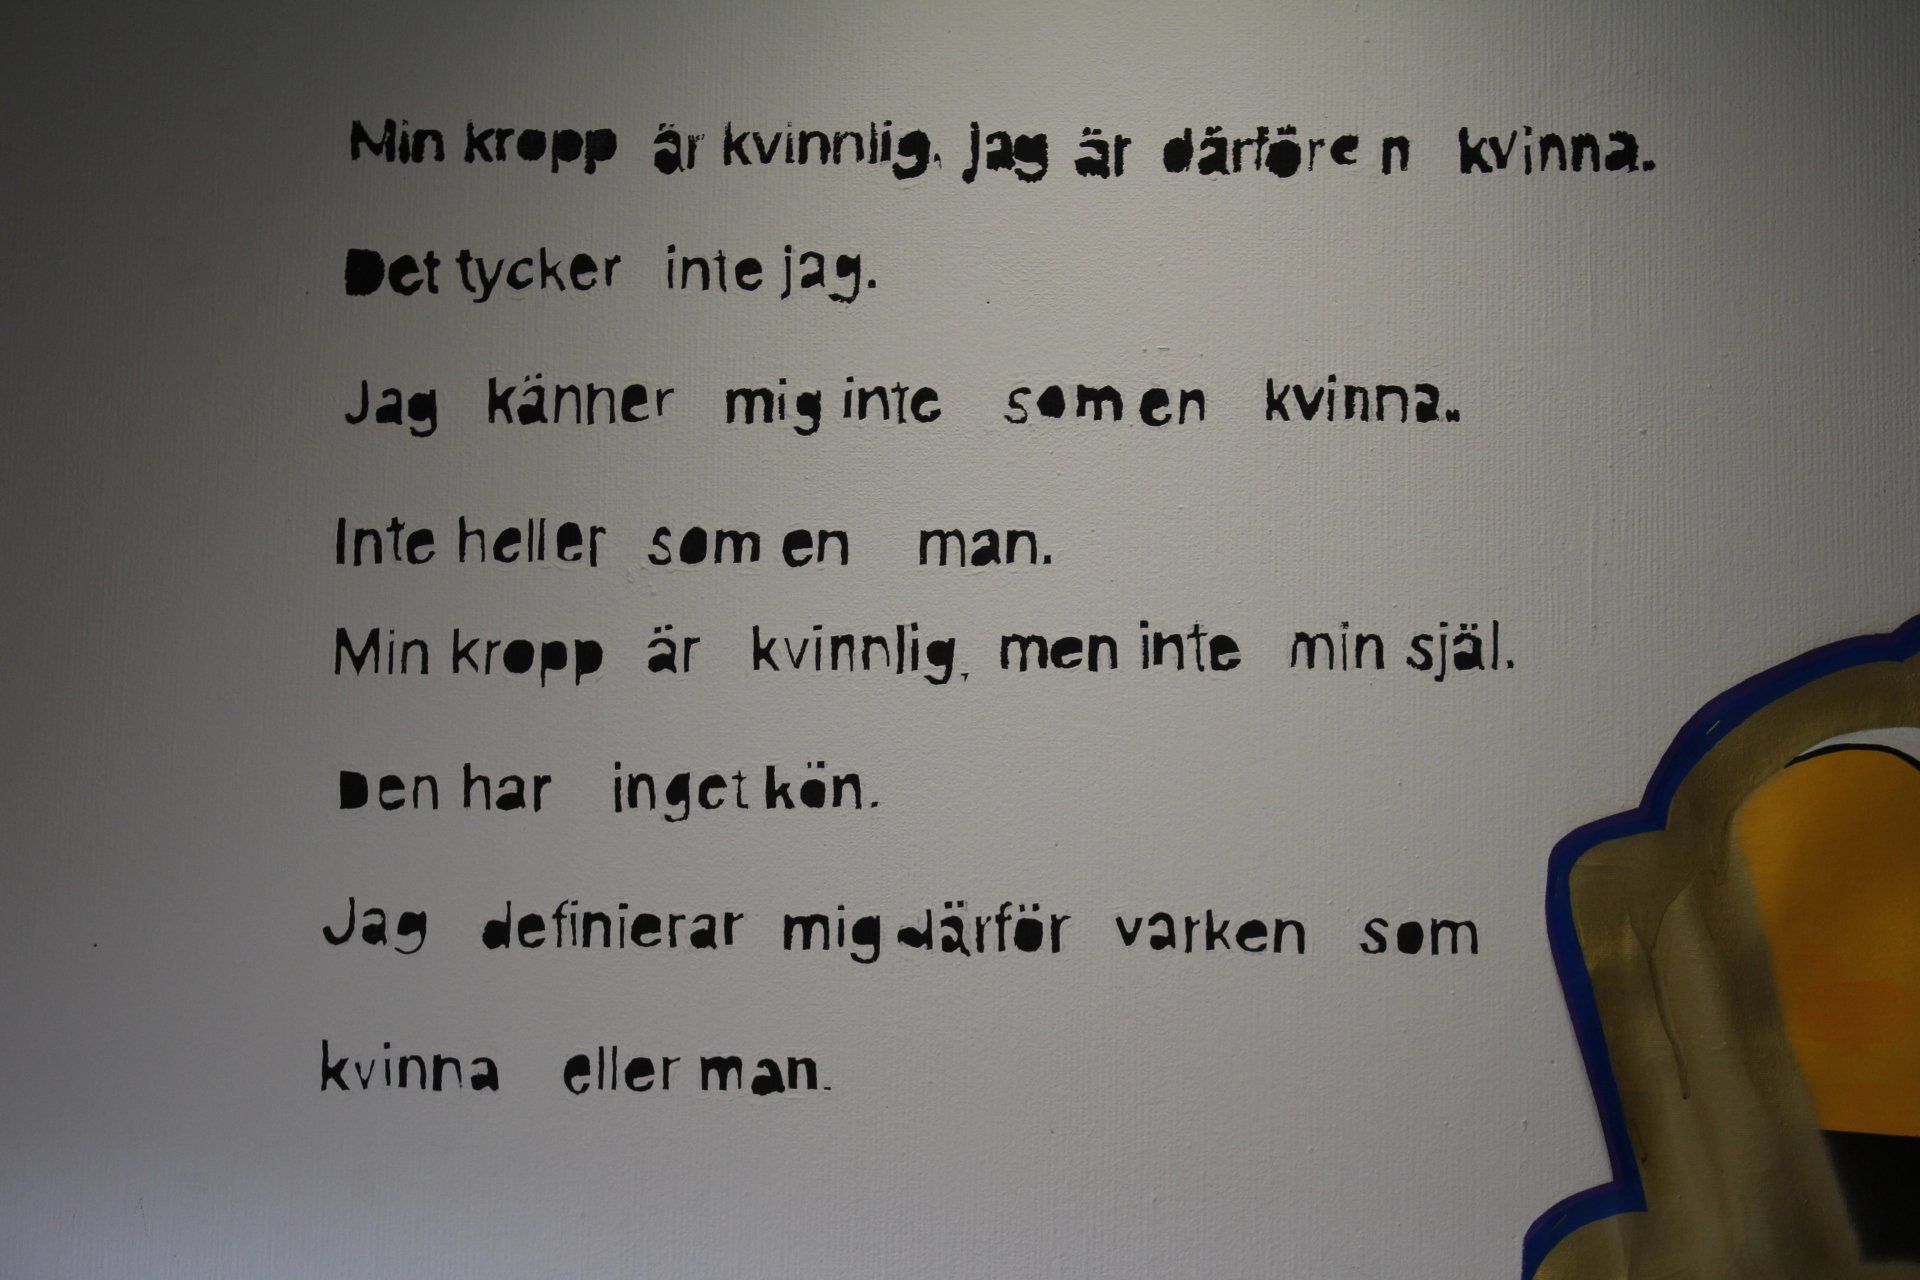 Min kropp är kvinnlig. Jag är därför en kvinna.
Det tycker inte jag.
Jag känner mig inte som en kvinna.
Inte heller som en man.
Min kropp är kvinnlig, men inte min själ.
Den har inget kön.
Jag definierar mig därför varken som
kvinna eller man.